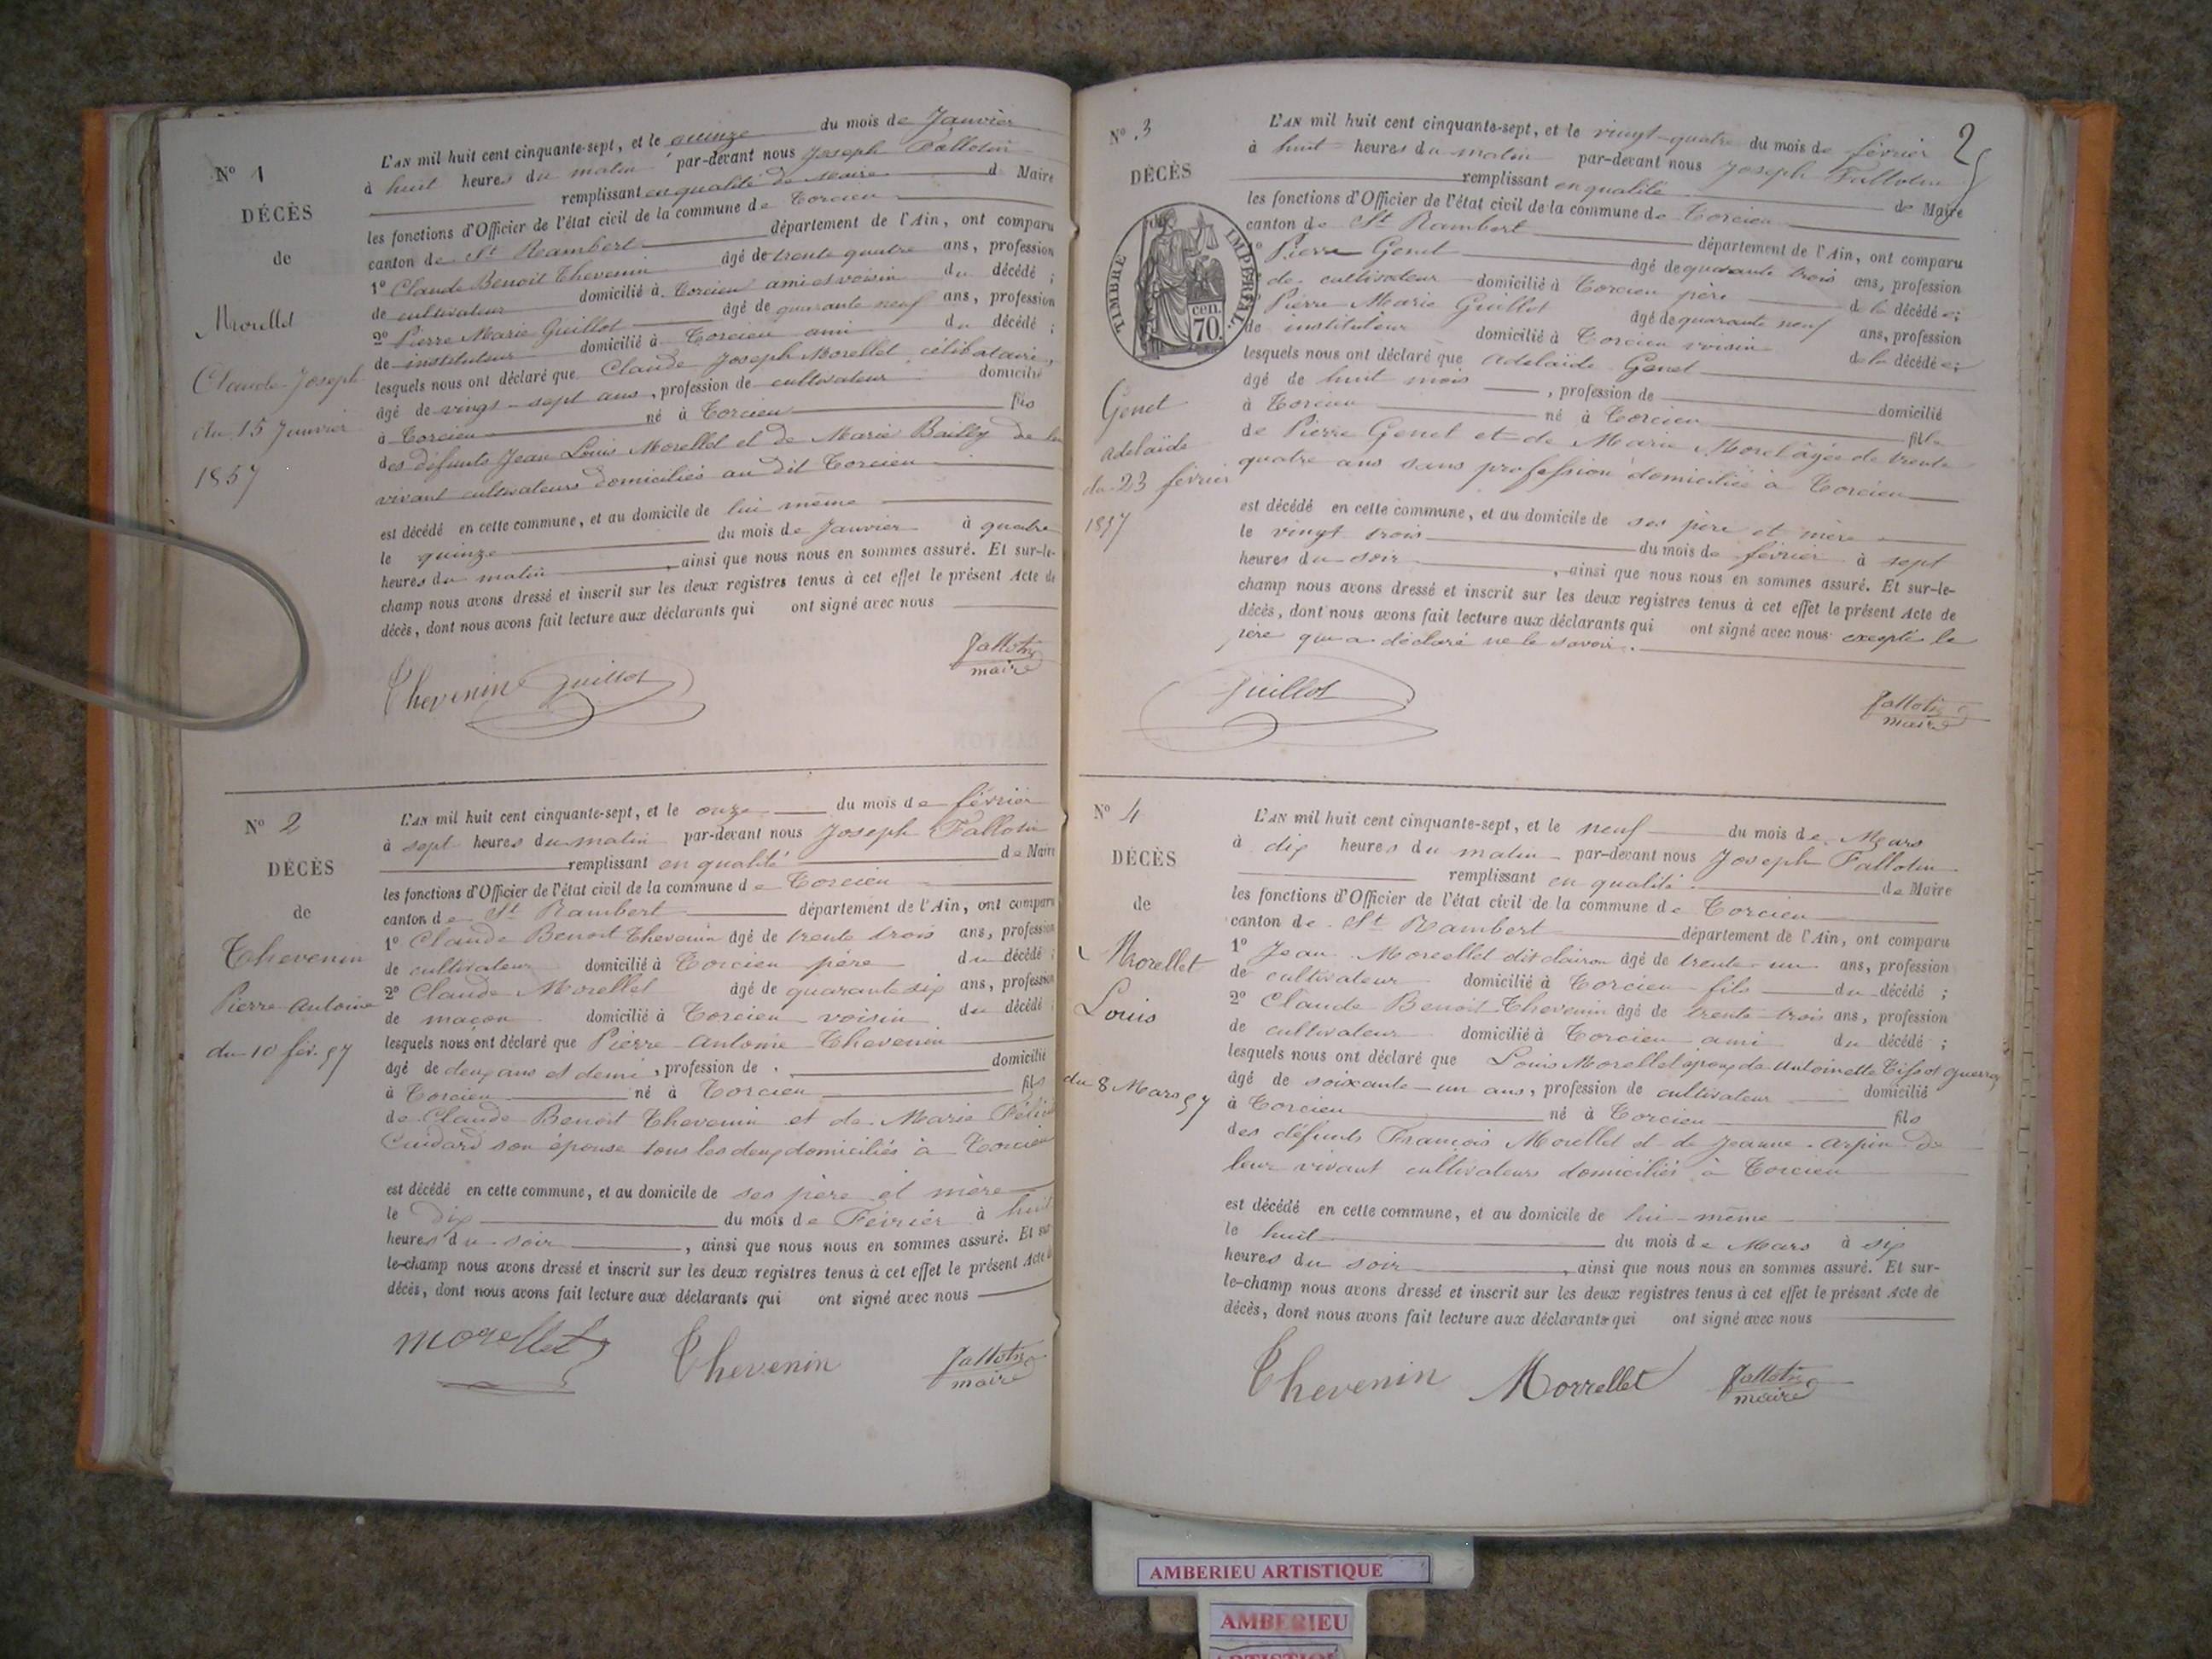 N° 1
DÉCÈS
de
Morellet
Claude Joseph
du 15 Janvier
1857
L'AN mil huit cent cinquante-sept, et le quinze du mois de Janvier
à huit heures du matin par-devant nous Joseph Fallotin
remplissant en qualité de Maire de Maire
les fonctions d'Officier de l'état civil de la commune de Torcieu
canton de St Rambert département de l'Ain, ont comparu
1° Claude Benoit Thevenin âgé de trente quatre ans, profession
de cultivateur domicilié à Torcieu ami et voisin du décédé ;
2° Pierre Marie Guillot âgé de quarante neuf ans, profession
de instituteur domicilié à Torcieu ami du décédé ;
lesquels nous ont déclaré que Claude Joseph Morellet célibataire,
âgé de vingt-sept ans, profession de cultivateur domicilié
à Torcieu né à Torcieu fils
des défunts Jean Louis Morellet et de Marie Bailly de leur
vivant cultivateurs domiciliés au dit Torcieu
est décédé en cette commune, et au domicile de lui même
le quinze du mois de Janvier à quatre
heures du matin, ainsi que nous nous en sommes assuré. Et sur-le-
champ nous avons dressé et inscrit sur les deux registres tenus à cet effet le présent Acte de
décès, dont nous avons fait lecture aux déclarants qui ont signé avec nous
Thevenin Guillot Fallotin
maire
N° 2
DÉCÈS
de
Thevenin
Pierre Antoine
du 10 fév. 57
L'AN mil huit cent cinquante-sept, et le onze du mois de février
à sept heures du matin par-devant nous Joseph Fallotin
remplissant en qualité de Maire
les fonctions d'Officier de l'état civil de la commune de Torcieu
canton de St Rambert département de l'Ain, ont comparu
1° Claude Benoit Thevenin âgé de trente trois ans, profession
de cultivateur domicilié à Torcieu père du décédé ;
2° Claude Morellet âgé de quarante six ans, profession
de maçon domicilié à Torcieu voisin du décédé ;
lesquels nous ont déclaré que Pierre Antoine Thevenin
âgé de deux ans et demi, profession de domicilié
à Torcieu né à Torcieu fils
de Claude Benoit Thevenin et de Marie
Cuidard son épouse tous les deux domiciliés à Torcieu
est décédé en cette commune, et au domicile de ses père et mère
le dix du mois de Février à huit
heures du soir, ainsi que nous nous en sommes assuré. Et sur
le-champ nous avons dressé et inscrit sur les deux registres tenus à cet effet le présent Acte de
décès, dont nous avons fait lecture aux déclarants qui ont signé avec nous
Morellet Thevenin Fallotin
maire
2
N° 3
DÉCÈS
TIMBRE IMPÉRIAL
cen.
70.
Genet
adelaïde
du 23 février
1857
L'AN mil huit cent cinquante-sept, et le vingt-quatre du mois de février
à huit heures du matin par-devant nous Joseph Fallotin
remplissant en qualité de Maire
les fonctions d'Officier de l'état civil de la commune de Torcieu
canton de St Rambert département de l'Ain, ont comparu
1° Pierre Genet âgé de quarante trois ans, profession
de cultivateur domicilié à Torcieu père de la décédée ;
Pierre Marie Guillot âgé de quarante neuf ans, profession
de instituteur domicilié à Torcieu voisin de la décédée ;
lesquels nous ont déclaré que adelaïde Genet
âgé de huit mois, profession de domicilié
à Torcieu né à Torcieu fille
de Pierre Genet et de Marie Morel âgée de trente
quatre ans sans profession domiciliée à Torcieu
est décédé en cette commune, et au domicile de ses père et mère
le vingt trois du mois de février à sept
heures du soir, ainsi que nous nous en sommes assuré. Et sur-le-
champ nous avons dressé et inscrit sur les deux registres tenus à cet effet le présent Acte de
décès, dont nous avons fait lecture aux déclarants qui ont signé avec nous excepté le
père qui a déclaré ne le savoir.
Guillot Fallotin
maire
N° 4
DÉCÈS
de
Morellet
Louis
du 8 Mars 57
L'AN mil huit cent cinquante-sept, et le neuf du mois de Mars
à dix heures du matin par-devant nous Joseph Fallotin
remplissant en qualité de Maire
les fonctions d'Officier de l'état civil de la commune de Torcieu
canton de St Rambert département de l'Ain, ont comparu
1° Jean Morellet dit clairon âgé de trente-un ans, profession
de cultivateur domicilié à Torcieu fils du décédé ;
2° Claude Benoit Thevenin âgé de trente-trois ans, profession
de cultivateur domicilié à Torcieu ami du décédé ;
lesquels nous ont déclaré que Louis Morellet époux de Antoinette
âgé de soixante-un ans, profession de cultivateur domicilié
à Torcieu né à Torcieu fils
des défunts Francois Morellet et de Jeanne Arpin de
leur vivant cultivateurs domiciliés à Torcieu
est décédé en cette commune, et au domicile de lui-même
le huit du mois de Mars à six
heures du soir, ainsi que nous nous en sommes assuré. Et sur-
le-champ nous avons dressé et inscrit sur les deux registres tenus à cet effet le présent Acte de
décès, dont nous avons fait lecture aux déclarants qui ont signé avec nous
Thevenin Morrellet Fallotin
maire
AMBERIEU ARTISTIQUE
AMBERIEU
ARTISTIQUE